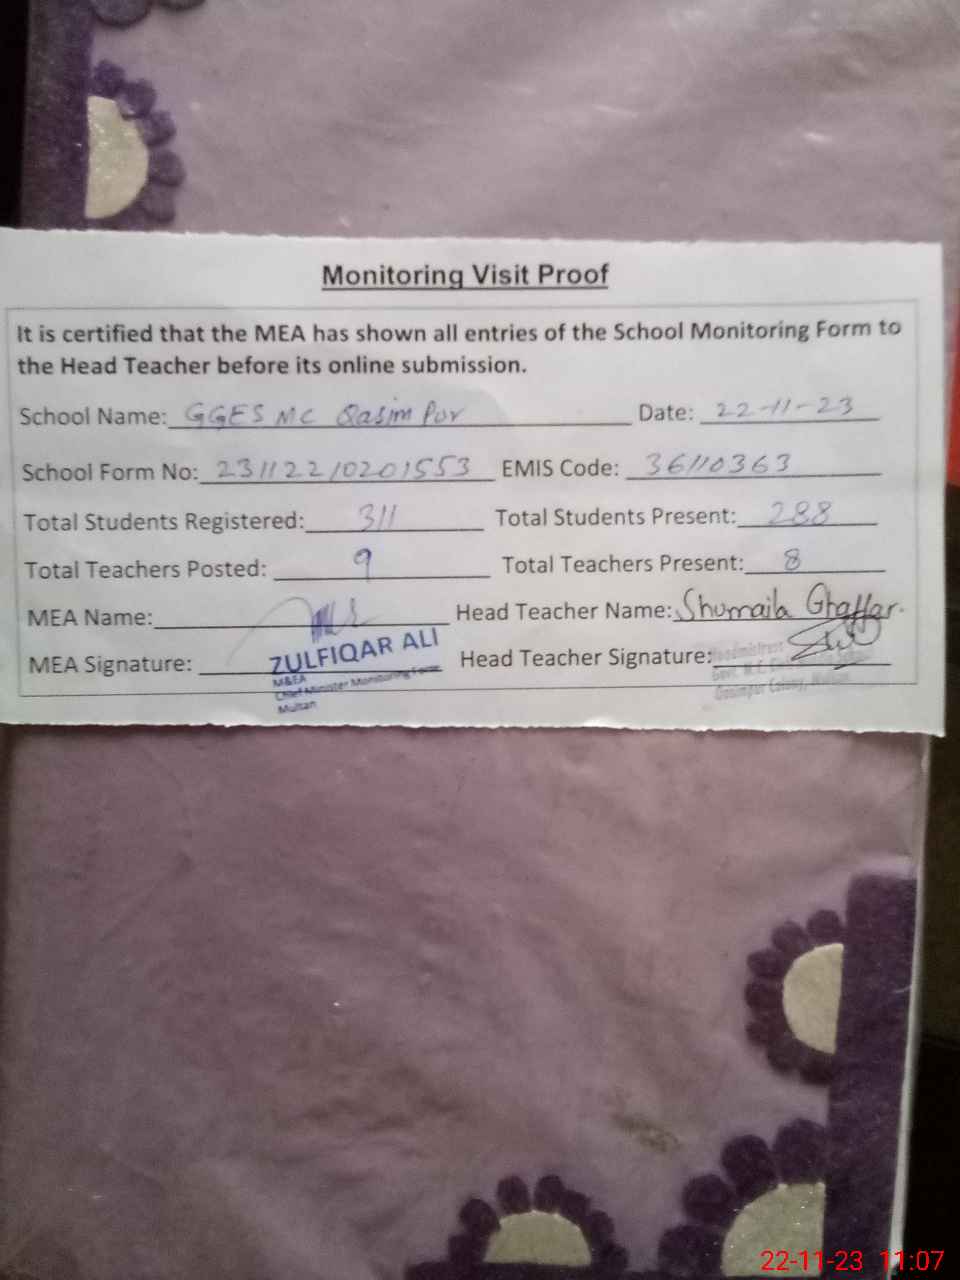 Monitoring Visit Proof
It is certified that the MEA has shown all entries of the School Monitoring Form to
the Head Teacher before its online submission.
School Name: GGES MC Qasim Pur Date: 22-11-23
School Form No: 23112210201553 EMIS Code: 36110363
Total Students Registered: 311 Total Students Present: 288
Total Teachers Posted: 9 Total Teachers Present: 8
MEA Name: Head Teacher Name: Shumaila Ghaffar.
MEA Signature: ZULFIQAR ALI Head Teacher Signature:
M&EA
Chief Minister Monitoring Force
Multan
22-11-23 11:07